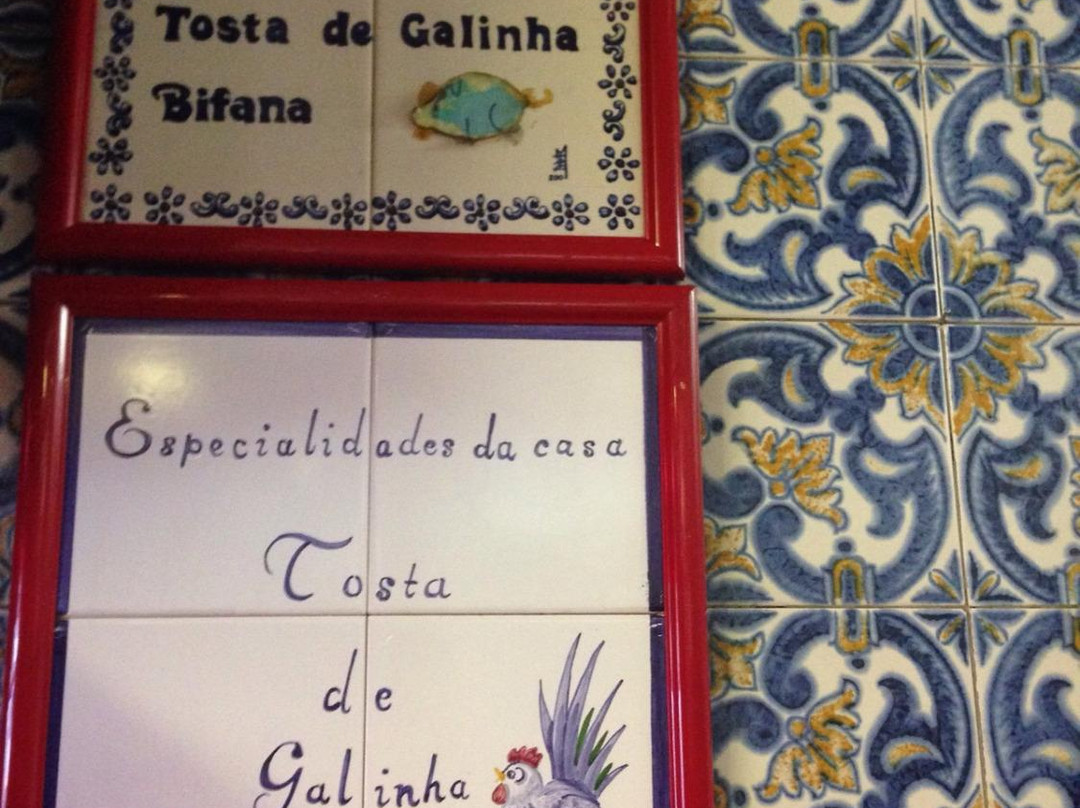 Tosta de Galinha
Bifana
Especialidades da casa
Tosta
de
Galinha